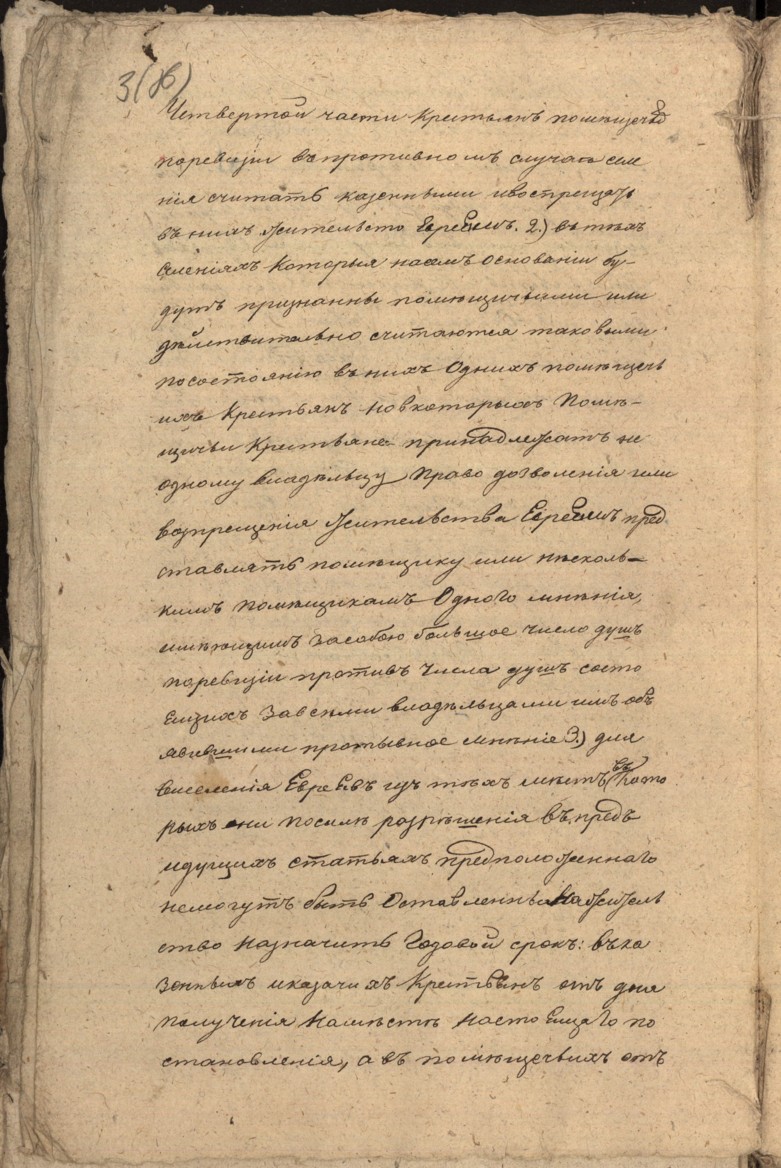 3(об)
Четвертой части Крестьянъ помѣщечьихъ
поревизіи въпротивномъ случаѣ селе
нія считать казенными ивоспрещать
въ нихъ жительсто Евреямъ. 2.) въ тѣхъ
Селеніяхъ Которыя насемъ основаніи бу-
дутъ признанны помѣщичьими или
дѣйствительно считаются таковыми
посостоянію въ нихъ Однихъ помѣщечь
ихъ Крестьянъ новкоторыхъ Помѣ-
щичьи Крестьяне принадлежатъ не
одному владѣльцу Право дозволенія или
возпрещенія жительства Евреямъ пред
ставлять помѣщику или нѣсколь-
кимъ помѣщикамъ Одного мненія,
имѣющимъ засобою большое число душъ
поревизіи противъ числа душъ состо
Ещихъ Завсеми владѣльцами имъ объ
явившими протывное мненіе 3.) для
Виселенія ЕвреЕвъ изъ тѣхъ мѣстъ въ кото
рыхъ они посилѣ разрѣшенія въ предъ
идущихъ статьяхъ предположеннаго
немогутъ быть Оставленны Нажитель
ство назначить Годовой срокъ: въка
зенныхъ иказачихъ Крестьянъ отъ дня
получения Намѣстѣ настоЕщаго по
становленія, а въ помѣщечьихъ отъ